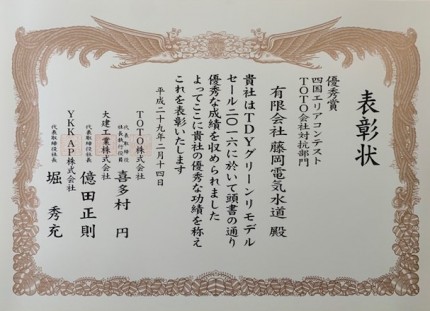 表彰状
優秀賞
四国エリアコンテスト
TOTO会対抗部門
有限会社藤岡電気水道 殿
貴社はTDYグリーンリモデル
セール二〇一六に於いて頭書の通り
優秀な成績を収められました
よってここに貴社の優秀な功績を称え
これを表彰いたします
平成二十九年二月十四日
TOTO株式会社
代表取締役
社長執行役員
喜多村 円
大建工業株式会社
代表取締役社長
億田正則
YKK AP株式会社
代表取締役社長
堀 秀充